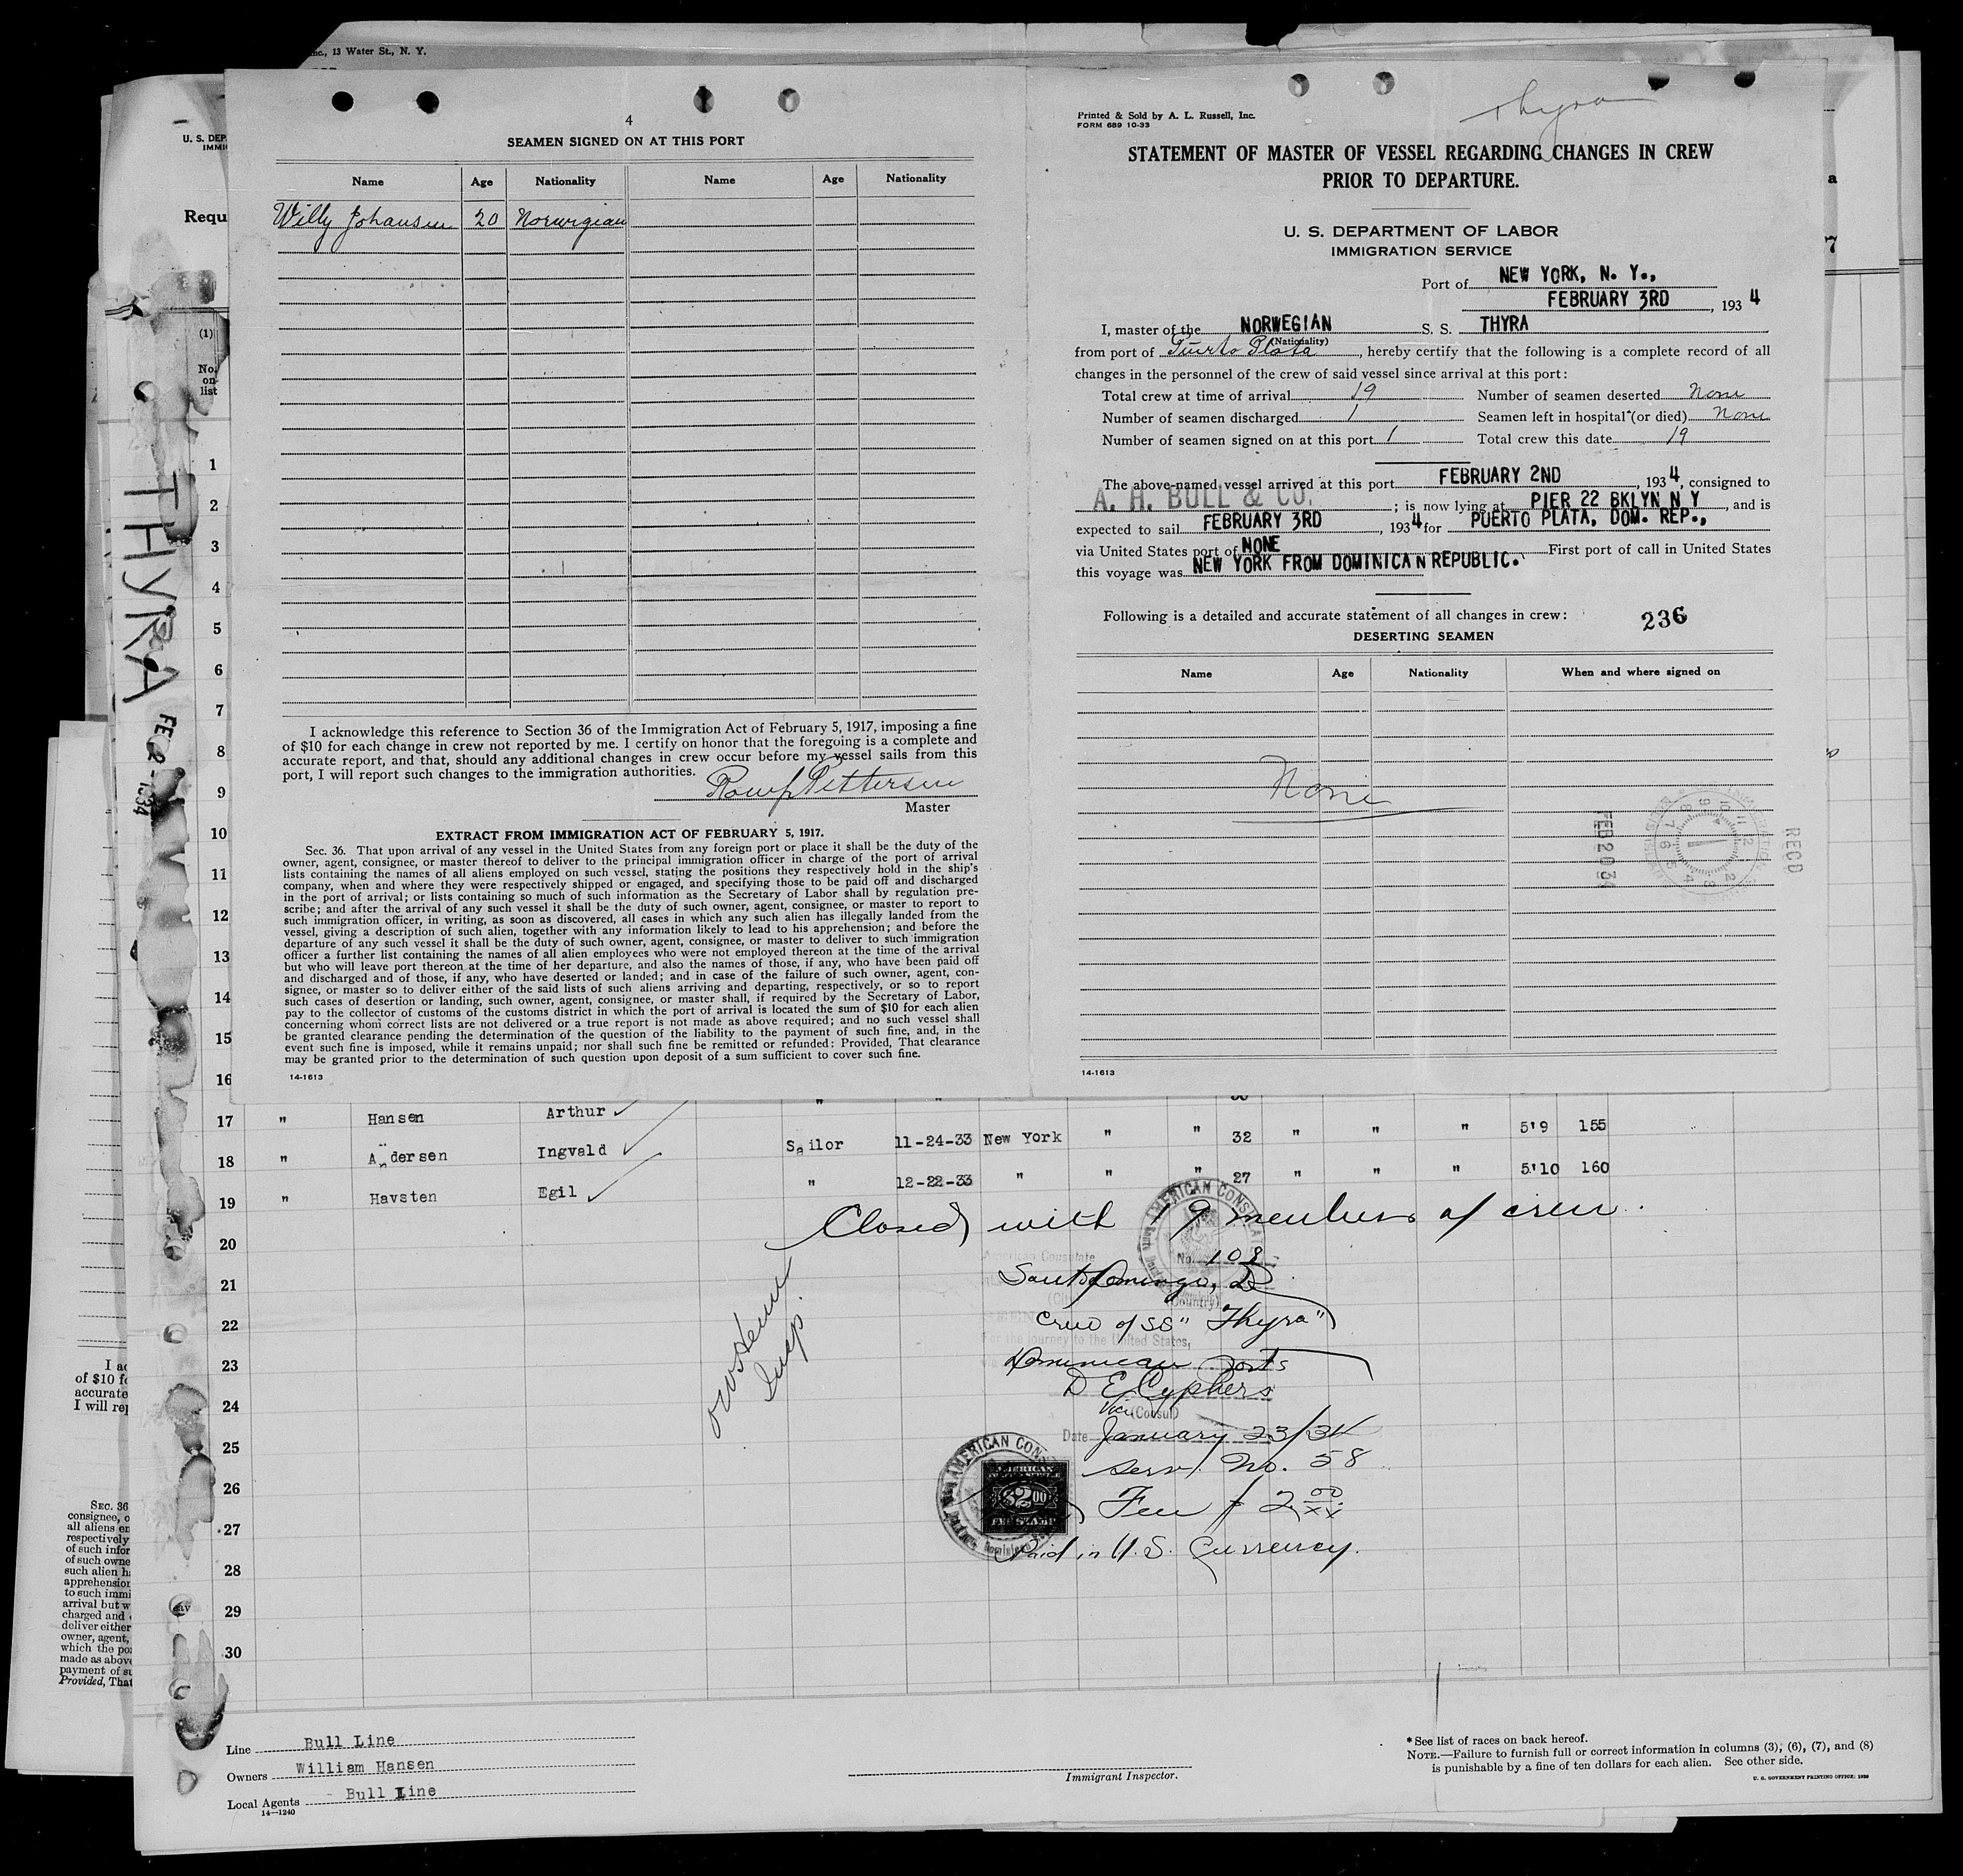 nc., 13 Water St., N. Y.
U. S. DEP
IMMI
Requ
(1)
No.
on
list
THYRA
FEB 2 - 1934
4
SEAMEN SIGNED ON AT THIS PORT
Name Age Nationality Name Age Nationality
Willy Johansen 20 Norwegian
I acknowledge this reference to Section 36 of the Immigration Act of February 5, 1917, imposing a fine
of $10 for each change in crew not reported by me. I certify on honor that the foregoing is a complete and
accurate report, and that, should any additional changes in crew occur before my vessel sails from this
port, I will report such changes to the immigration authorities.
Pettersen
Master
EXTRACT FROM IMMIGRATION ACT OF FEBRUARY 5, 1917.
Sec. 36. That upon arrival of any vessel in the United States from any foreign port or place it shall be the duty of the
owner, agent, consignee, or master thereof to deliver to the principal immigration officer in charge of the port of arrival
lists containing the names of all aliens employed on such vessel, stating the positions they respectively hold in the ship's
company, when and where they were respectively shipped or engaged, and specifying those to be paid off and discharged
in the port of arrival; or lists containing so much of such information as the Secretary of Labor shall by regulation pre-
scribe; and after the arrival of any such vessel it shall be the duty of such owner, agent, consignee, or master to report to
such immigration officer, in writing, as soon as discovered, all cases in which any such alien has illegally landed from the
vessel, giving a description of such alien, together with any information likely to lead to his apprehension; and before the
departure of any such vessel it shall be the duty of such owner, agent, consignee, or master to deliver to such immigration
officer a further list containing the names of all alien employees who were not employed thereon at the time of the arrival
but who will leave port thereon at the time of her departure, and also the names of those, if any, who have been paid off
and discharged and of those, if any, who have deserted or landed; and in case of the failure of such owner, agent, con-
signee, or master so to deliver either of the said lists of such aliens arriving and departing, respectively, or so to report
such cases of desertion or landing, such owner, agent, consignee, or master shall, if required by the Secretary of Labor,
pay to the collector of customs of the customs district in which the port of arrival is located the sum of $10 for each alien
concerning whom correct lists are not delivered or a true report is not made as above required; and no such vessel shall
be granted clearance pending the determination of the question of the liability to the payment of such fine, and, in the
event such fine is imposed, while it remains unpaid; nor shall such fine be remitted or refunded: Provided, That clearance
may be granted prior to the determination of such question upon deposit of a sum sufficient to cover such fine.
14-1613
Thyra
Printed & Sold by A. L. Russell, Inc.
FORM 689 10-33
STATEMENT OF MASTER OF VESSEL REGARDING CHANGES IN CREW
PRIOR TO DEPARTURE.
U. S. DEPARTMENT OF LABOR
IMMIGRATION SERVICE
Port of NEW YORK, N. Y.,
FEBRUARY 3RD, 1934
I, master of the NORWEGIAN S. S. THYRA
(Nationality)
from port of Puerto Plata, hereby certify that the following is a complete record of all
changes in the personnel of the crew of said vessel since arrival at this port:
Total crew at time of arrival 19 Number of seamen deserted None
Number of seamen discharged 1 Seamen left in hospital (or died) None
Number of seamen signed on at this port 1 Total crew this date 19
The above-named vessel arrived at this port FEBRUARY 2ND, 1934, consigned to
A. H. BULL & CO. ; is now lying at PIER 22 BKLYN N Y, and is
expected to sail FEBRUARY 3RD, 1934 for PUERTO PLATA, DOM. REP.,
via United States port of NONE First port of call in United States
this voyage was NEW YORK FROM DOMINICAN REPUBLIC.
Following is a detailed and accurate statement of all changes in crew: 236
DESERTING SEAMEN
Name Age Nationality When and where signed on
None
RECD
FEB 2 034
14-1613
a
7
1
2
3
4
5
6
7
8
9
10
11
12
13
14
15
16
17 " Hansen Arthur " " 30
18 " Andersen Ingvald Sailor 11-24-33 New York " " 32 " " " 5'9 155
19 " Havsten Egil " 12-22-33 " " " 27 " " " 5'10 160
20
21
22
23
24
25
26
27
28
29
30
Closed with 19 members of crew.
AMERICAN CONSULAT
American Consulate
No. 108
Santo Domingo, D
(City) (Country)
Crew of SS "Thyra"
For the journey to the United States,
Dominican ports
D E Cyphers
Vice (Consul)
Date January 23/34
Serv. No. 58
Fee $ 2 00/xx
Paid in U. S. Currency.
Insp.
AMERICAN CONS
AMERICAN
$2.00
FEE STAMP
I ac
of $10 f
accurate
I will rep
SEC. 36
consignee, o
all aliens em
respectively
of such infor
of such owne
such alien h
apprehension
to such immi
arrival but w
charged and
deliver either
owner, agent,
which the po
made as above
payment of su
Provided, That
Line Bull Line
Owners William Hansen
Local Agents Bull Line
14-1240
Immigrant Inspector.
* See list of races on back hereof.
NOTE.—Failure to furnish full or correct information in columns (3), (6), (7), and (8)
is punishable by a fine of ten dollars for each alien. See other side.
U. S. GOVERNMENT PRINTING OFFICE: 1933